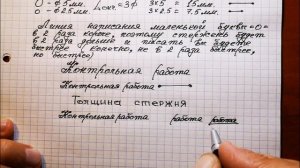 O - ф5мм. Lокр.=3ф 3х5 = 15мм.
O - ф2,5мм. 3х2,5 = 7,5мм.
Линия написания маленькой буквы -О-
в 2 раза короче, поэтому стержень будет
в 2 раза дольше и писать вы будете
быстрее (конечно, не в 2 раза быстрее,
но быстрее)
Контрольная работа
Контрольная работа
Толщина стержня
Контрольная работа работа работа